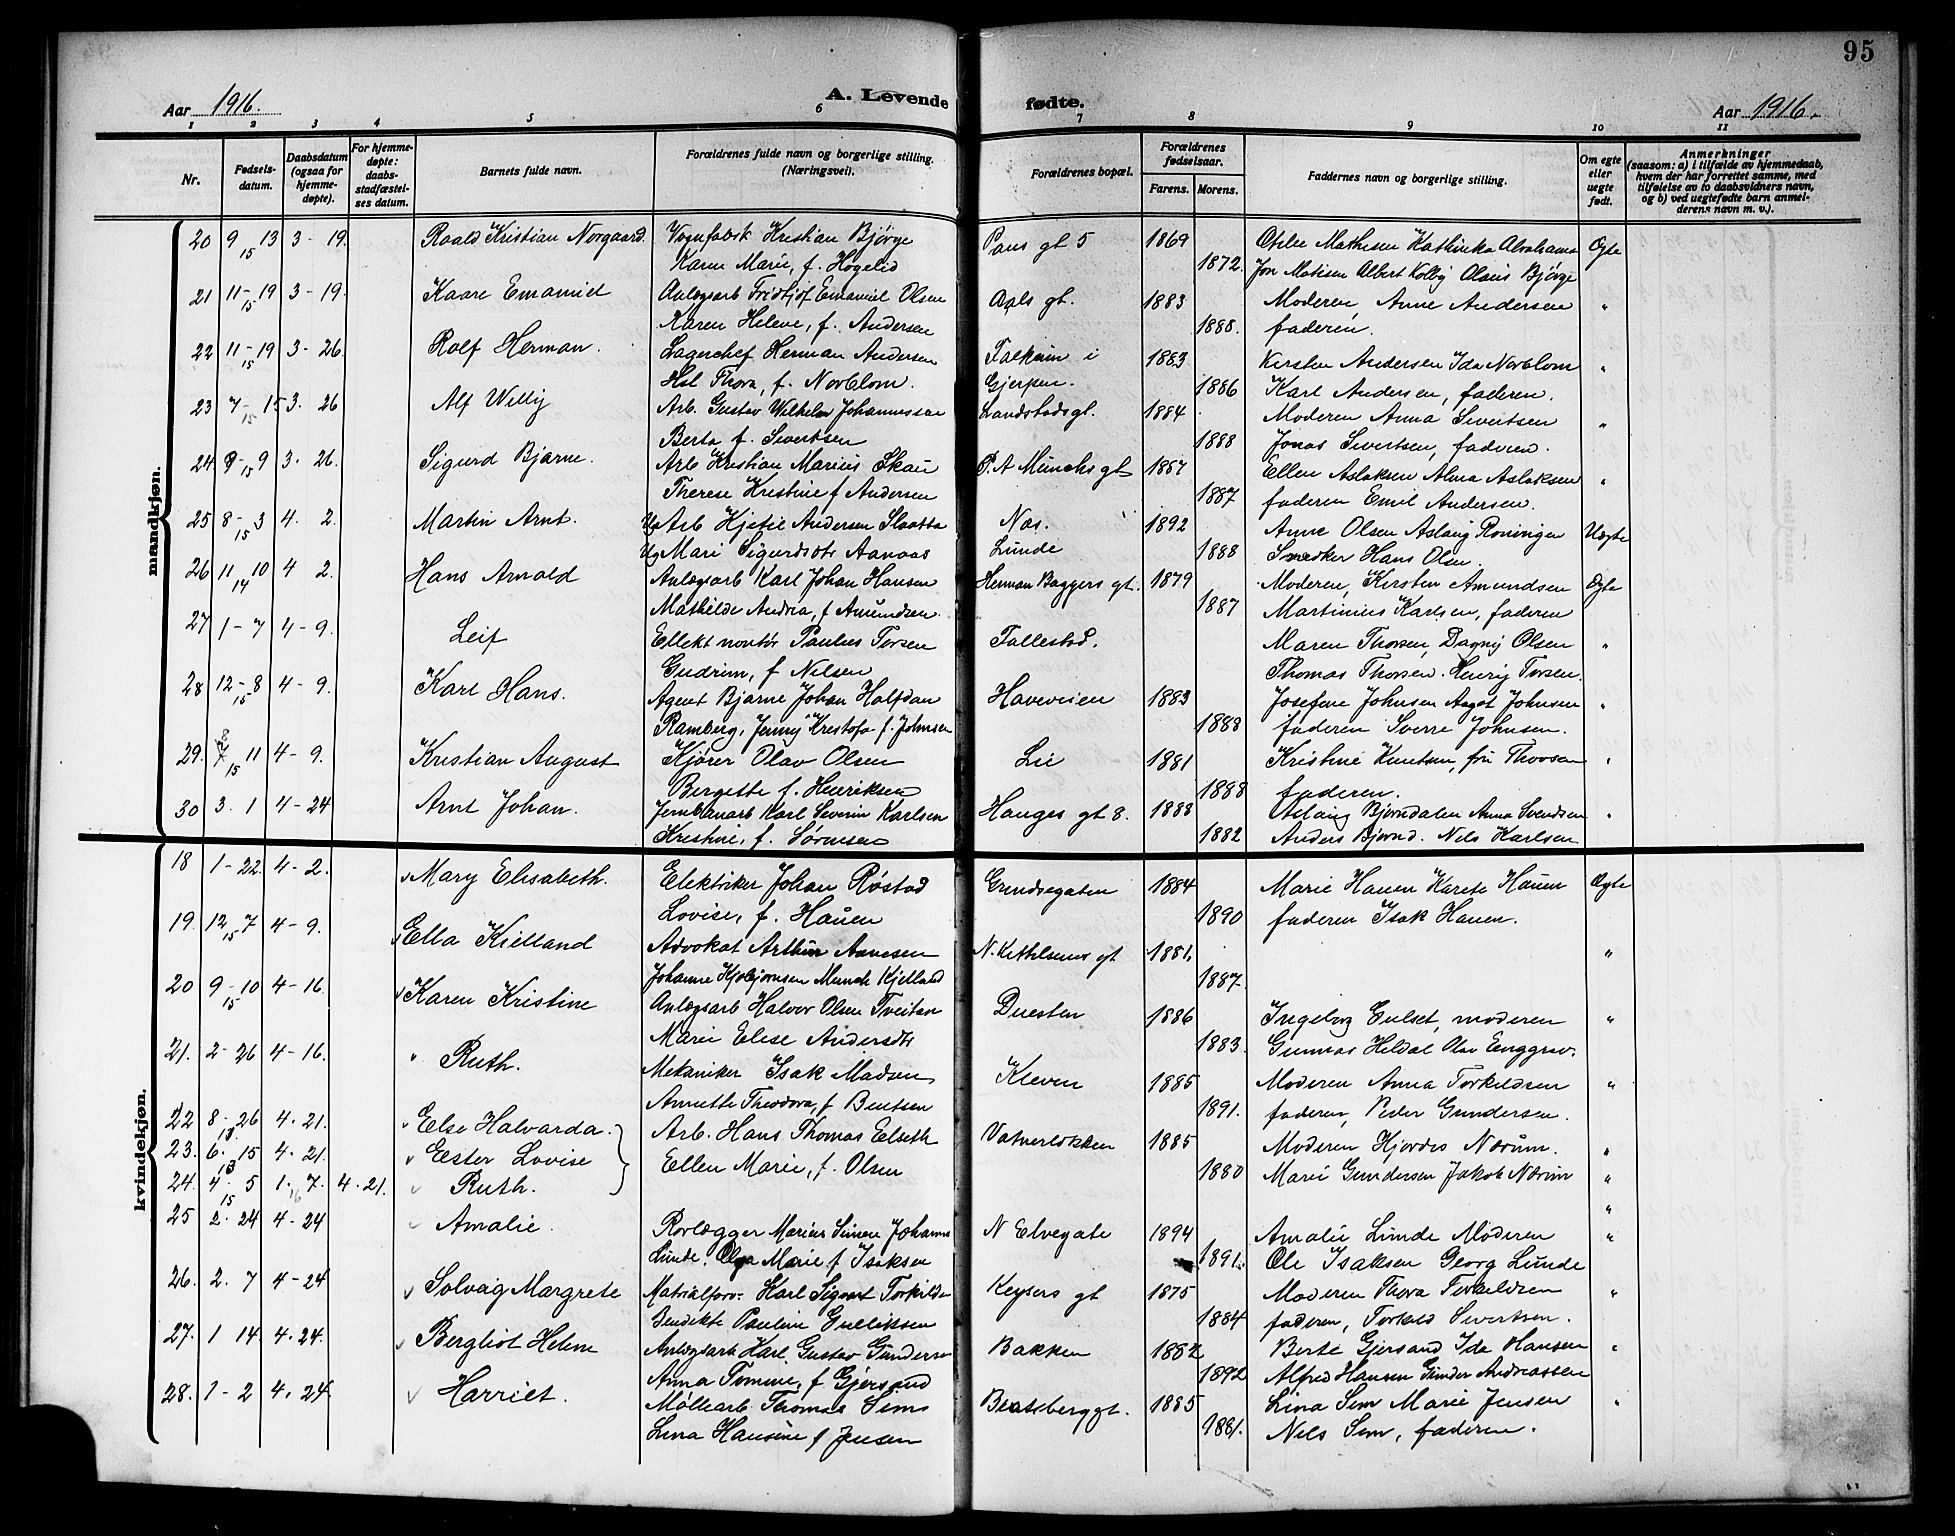 95
Aar 1916. A. Levende fødte. Aar 1916.
1 2 3 4 5 6 7 8 9 10 11
Nr. Fødsels-datum. Daabsdatum (ogsaa for hjemme-døpte). For hjemme-døpte: daabs-stadfæstel-ses datum. Barnets fulde navn. Forældrenes fulde navn og borgerlige stilling. (Næringsvei). Forældrenes bopæl. Forældrenes fødselsaar. Farens. Morens. Faddernes navn og borgerlige stilling. Om egte eller uegte født. Anmerkninger (saasom: a) i tilfælde av hjemmedaab, hvem der har forrettet samme, med tilføielse av to daabsvidners navn, og b) ved uegtefødte barn anmel-derens navn m. v.).
mandkjøn.
20 9 13 15 3 - 19. Roald Kristian Norgaard. Vognfabrk Kristian Bjørge Pans gt 5 1869 Othlie Mathisen Kathinka Abrahams Ægte
Karen Marie, f. Høgelid 1872. Jon Matisen Albert Kolby Olaus Bjørge
21 11 - 19 15 3 - 19. Kaare Emanuel Anlægsarb Fridtjof Emanuel Olsen Aals gt. 1883 Moderen, Anne Andersen "
Karen Helene, f. Andersen 1888. faderen.
22 11 - 19 15 3 - 26. Rolf Herman. Lagerchef Herman Andersen Falkum i 1883 Kirsten Andersen Ida Norblom "
Hst Thora, f. Norblom. Gjerpen. 1886 Karl Andersen, faderen.
23 7 - 15 15 3. 26 Alf Willy Arb. Gustav Wilhelm Johannessen Landstadsgt. 1884 Moderen Anna Sivertsen "
Berta f. Sivertsen 1888 Jonas Sivertsen, faderen.
24. 9 - 9 15 3. 26. Sigurd Bjarne. Arb Kristian Marius Skau P. A Munchs gt 1887 Ellen Aslaksen Alma Aslaksen "
Therese Kristine f Andersen 1887 faderen Emil Andersen.
25 8 - 3 15 4. 2. Martin Arnt. Ug Arb Kjetil Andersen Slaatta Næs. 1892 Anne Olsen Aslaug Roningen Uægte
Ug Mari Sigurdsdtr Aanaas Lunde 1888 Snedker Hans Olsen.
26 11 10 14 4 2. Hans Arnold Anlægsarb Karl Johan Hansen Herman Baggers gt. 1879 Moderen, Kirsten Amundsen Ægte
Mathilde Andrea, f Amundsen. 1887 Martinius Karlsen, faderen
27 1 - 7 4 - 9. Leif Ellekt montør Paulus Torsen Follestad. Maren Thorsen, Dagny Olsen "
Gudrun, f Nilsen Thomas Thorsen. Henry Torsen.
28 12 - 8 15 4 - 9. Karl Hans. Agent Bjarne Johan Halfdan Haveveien 1883 Josefine Johnsen Aagot Johnsen "
Ramberg, Jenny Kristofa f. Johnsen 1888 faderen Sverre Johnsen.
29. 8 11 15 4 - 9. Kristian August Kjører Olav Olsen Lie 1881 Kristine Knutsen, fru Thovsen "
Bergitte f. Henriksen 1888 faderen.
30 3. 1 4 - 24 Arnt Johan. Jernbanarb Karl Severin Karlsen Hauges gt 8. 1888 Aslaug Bjørndalen Anna Svendsen "
Kristine, f. Sørensen 1882 Anders Bjørnd. Nils Karlsen
kvindekjøn.
18 1 - 22. 4 - 2. Mary Elisabeth. Elektriker Johan Røstad Grindsegaten 1884 Marie Hauen Karete Hauen Ægte
Lovise, f. Hauen 1890 faderen Isak Hauen.
19. 12 7 15 4 - 9. Ella Kielland Advokat Arthur Aanesen N. Kittilsens gt 1881. "
Johanne Kjølbjørnsen Munch Kjelland 1887.
20 9 - 10 15 4 - 16. Karen Kristine Anlægsarb Halvor Olsen Tveitan Duesten 1886 Ingeborg Gulset, moderen "
Marie Elise Andersdtr 1883. Gunnar Heldal Olav Enggrav.
21. 2 - 26 4 - 16. " Ruth. Mekaniker Isak Madsen Kleven 1885 Moderen Anna Torkildsen "
Annette Theodora, f Bentsen 1891. faderen, Peder Gundersen.
22 8 - 26 13 4. 21. Else Halvarda. Arb. Hans Thomas Eelseth Vatverløkken 1885 Moderen Hjordis Nærum. "
23. 6. 15 13 4. 21. Ester Lovise Ellen Marie, f. Olsen 1880 Marie Gundersen Jakob Nærum "
24. 4. 5 15 1. 16 7. 4. 21. Ruth. "
25 2. 24 4 - 24 Amalie. Rørlægger Marius Simen Johannes N Elvegate 1894 Amalie Lunde Moderen "
Lunde. Olga Marie f Isaksen 1891. Ole Isaksen Georg Lunde
26. 2. 7 4 - 24 Solvaig Margrete Matrialforv. Karl Sigvart Torkildsen Keysers gt 1875 Moderen Thora Torkildsen "
Bendikte Pauline Gulliksen 1884 faderen, Torkild Sivertsen.
27. 1 14. 4. 24. Bergliot Helene Anlægsarb Karl Gustav Gundersen Bakken 1882 Berte Gjersand Ida Hansen "
Anna Tomine, f Gjersand 1892 Alfred Hansen Gunder Andreassen
28. 1 - 2 4. 24. Harriet. Møllearb Thomas Sims Bratsberggt. 1885 Lina Sim Marie Jensen "
Lina Hansine f Jensen 1881. Nils Sim, faderen.